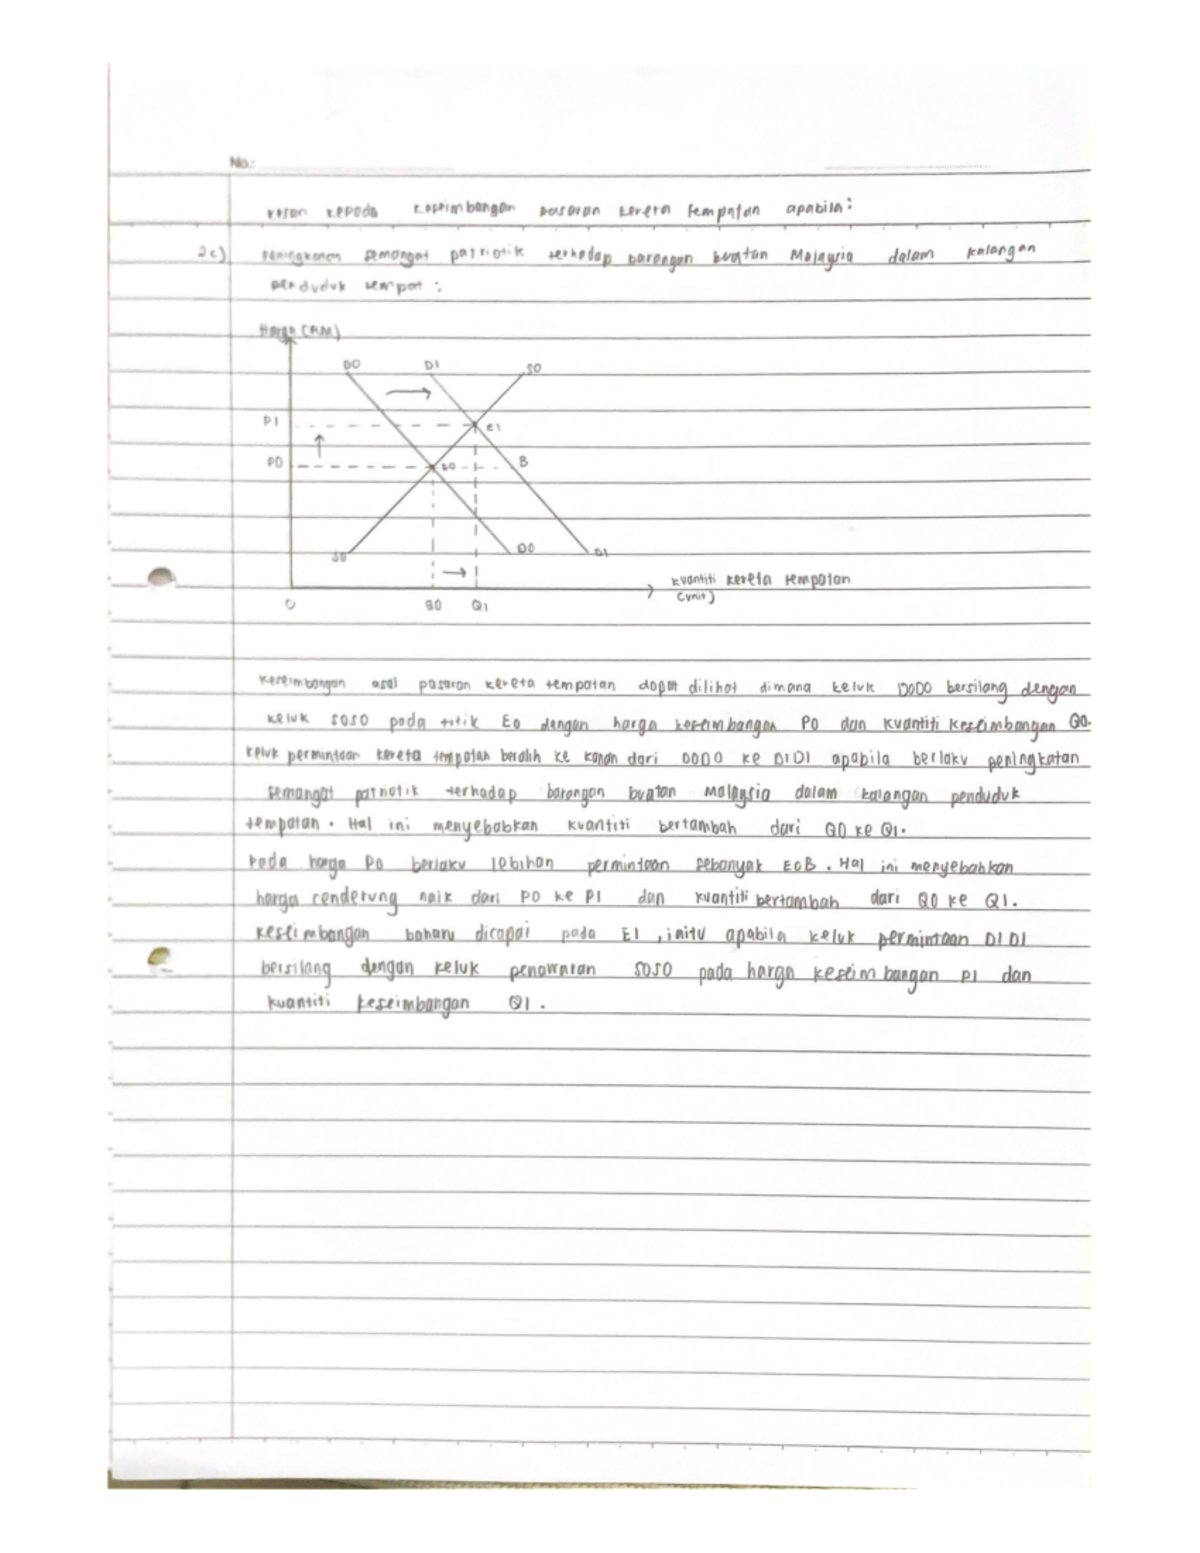 No.:
kesan kepada keseimbangan pasaran kereta tempatan apabila:
2c) peningkanan semangat patriotik terhadap barangan buatan Malaysia dalam kalangan
penduduk tempat :
Harga (RM)
D0 D1 S0
P1 E1
P0 E0 B
S0 D0 D1
kuantiti kereta tempatan
(unit)
0 Q0 Q1
keseimbangan asal pasaran kereta tempatan dapat dilihat dimana keluk D0D0 bersilang dengan
keluk S0S0 pada titik E0 dengan harga keseimbangan P0 dan kuantiti keseimbangan Q0.
keluk permintaan kereta tempatan beralih ke kanan dari D0D0 ke D1D1 apabila berlaku peningkatan
semangat patriotik terhadap barangan buatan Malaysia dalam kalangan penduduk
tempatan. Hal ini menyebabkan kuantiti bertambah dari Q0 ke Q1.
Pada harga P0 berlaku lebihan permintaan sebanyak E0B. Hal ini menyebabkan
harga cenderung naik dari P0 ke P1 dan kuantiti bertambah dari Q0 ke Q1.
keseimbangan baharu dicapai pada E1, iaitu apabila keluk permintaan D1D1
bersilang dengan keluk penawaran S0S0 pada harga keseimbangan P1 dan
kuantiti keseimbangan Q1.